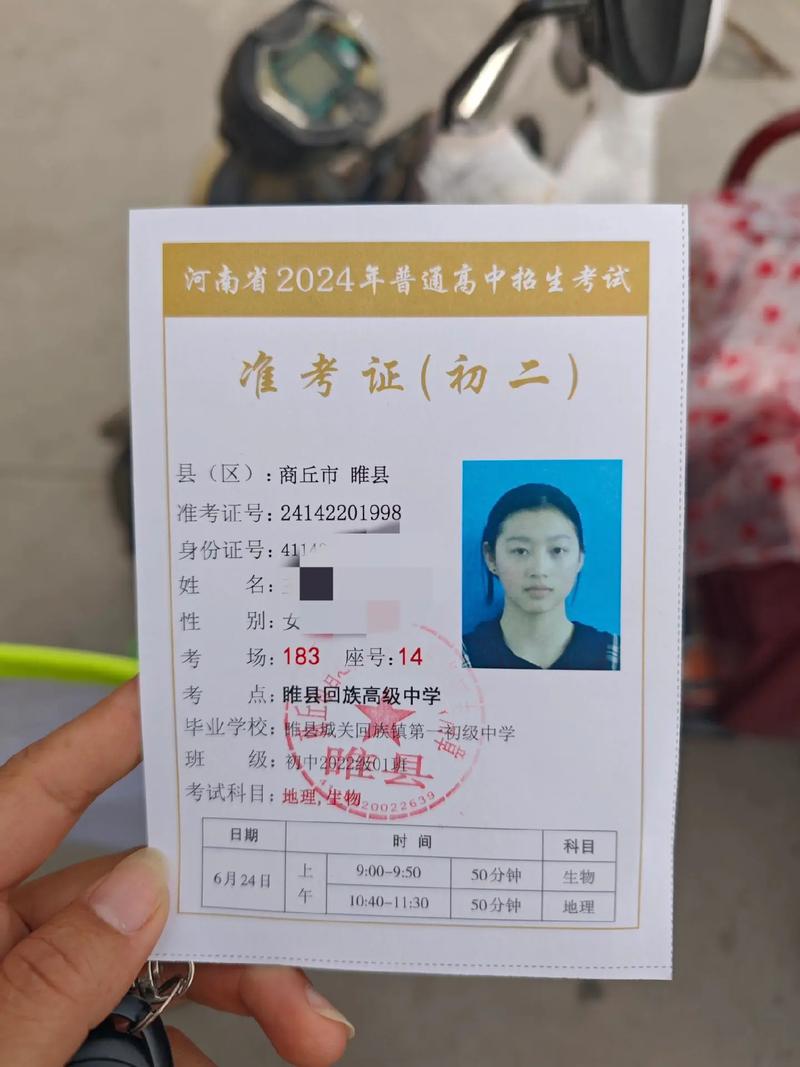 河南省2024年普通高中招生考试
准考证(初二)
县（区）: 商丘市 睢县
准考证号: 24142201998
身份证号: 4114
姓 名:
性 别: 女
考 场: 183 座号: 14
考 点: 睢县回族高级中学
毕业学校: 睢县城关回族镇第一初级中学
班 级: 初中2022级01班
考试科目: 地理,生物
睢县
日期 时间 科目
6月24日 上午 9:00-9:50 50分钟 生物
10:40-11:30 50分钟 地理